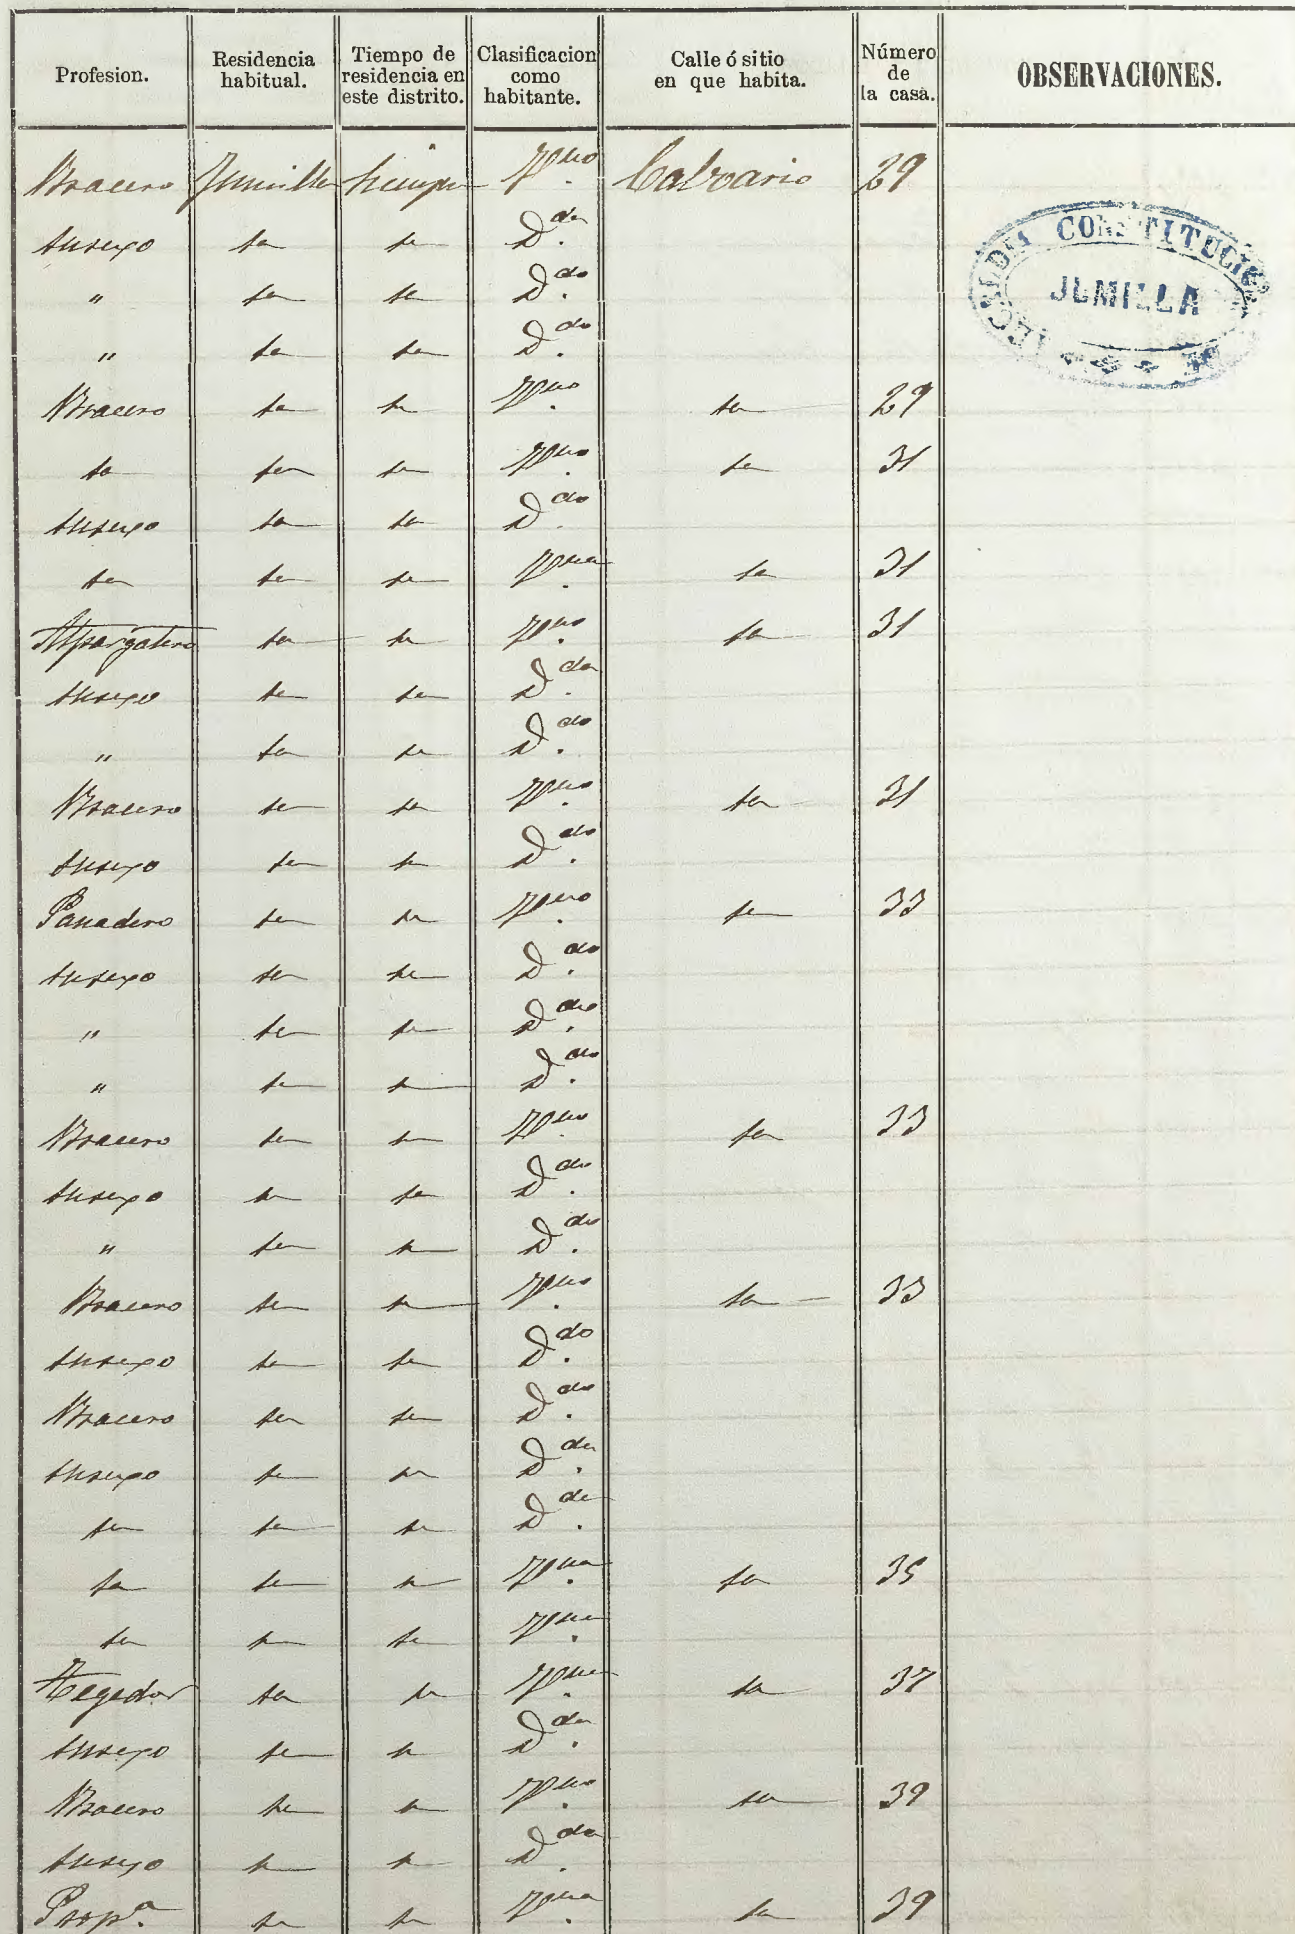 Profesion. Residencia habitual. Tiempo de residencia en este distrito. Clasificacion como habitante. Calle ó sitio en que habita. Número de la casa. OBSERVACIONES.
Bracero Jumilla Siempre Vno Calvario 29
Su sexo id id Ddª
" id id Ddo
" id id Ddo
Bracero id id Vno id 29
id id id Vno id 31
Su sexo id id Ddo
id id id Vna id 31
Alpargatero id id Vno id 31
Su sexo id id Ddª
" id id Ddo
Bracero id id Vno id 31
Su sexo id id Ddo
Panadero id id Vno id 33
Su sexo id id Ddo
" id id Ddo
" id id Ddo
Bracero id id Vno id 33
Su sexo id id Ddo
" id id Ddo
Bracero id id Vno id 33
Su sexo id id Ddo
Bracero id id Ddo
Su sexo id id Ddª
id id id Ddª
id id id Vna id 35
id id id Vna
Tegedor id id Vno id 37
Su sexo id id Ddª
Bracero id id Vno id 39
Su sexo id id Ddª
Propª id id Vna id 39
ALCALDIA CONSTITUCIONAL
JUMILLA